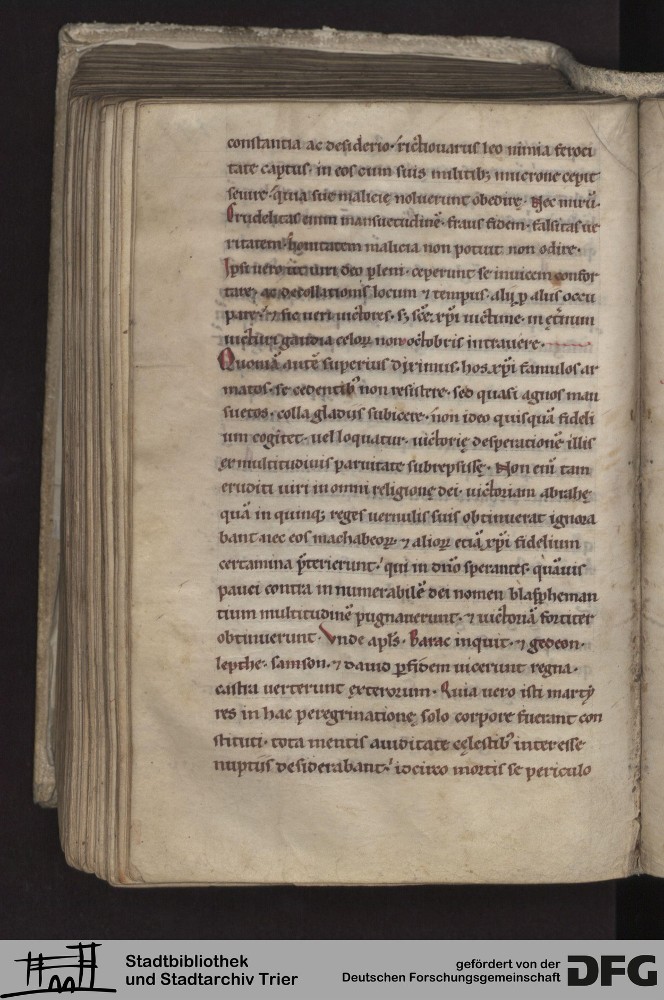 constantia ac desiderio· rictiouarus leo nimia feroci
tate captus· in eos cum suis militib; mucrone cepit
seuire· quia sue malicię noluerunt obedire· Nec mirū·
Crudelitas enim mansuetudinē· fraus fidem· falsitas ue
ritatem· bonitatem malicia non potuit non odire·
Ipsi uero ut uiri deo pleni· ceperunt se inuicem confor
tare; ac decollationis locum ⁊ tempus· aliꝫ p̱ aliis occu
pare· ⁊ sic ueri uictores· s; scē xp̄i uictime· in ęt̄num
uicturi gaudia celoꝝ non· octobris intrauere·
Quoniā autē superius diximus· hos xp̄i famulos ar
matos· se cedentib; non resistere· sed quasi agnos man
suetos· colla gladiis subicere· non ideo quisquā fideli
um cogitet· uel loquatur· uictorię desperationē illis
ex multitudinis paruitate subrepsisse· Non eni tam
eruditi uiri in omni religione dei· uictoriam abrahę
quā in quinq; reges uernulis suis obtinuerat ignora
bant nec eos machabeoꝝ· ⁊ alioꝝ etiā xp̄i fidelium
certamina p̄terierunt· qui in dn̄o sperantes· quāuis
pauci contra in numerabilē dei nomen blaspheman
tium multitudinē pugnauerunt· ⁊ uictoriā fortiter
obtinuerunt· Vnde apls̄· Barac inquit· ⁊ gedeon·
Iepthe· samson· ⁊ dauid p̱ fidem uicerunt regna·
castra uerterunt exterorum· Quia uero isti marty
res in hac peregrinatione solo corpore fuerant con
stituti· tota mentis auiditate cęlestib; interesse
nuptiis desiderabant· idcirco mortis se periculo
Stadtbibliothek
und Stadtarchiv Trier
gefördert von der
Deutschen Forschungsgemeinschaft
DFG